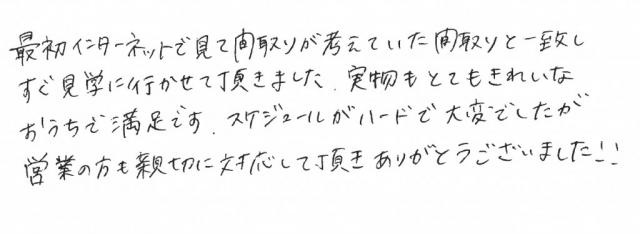 最初インターネットで見て間取りが考えていた間取りと一致し
すぐ見学に行かせて頂きました．実物もとてもきれいな
おうちで満足です．スケジュールがハードで大変でしたが
営業の方も親切に対応して頂きありがとうございました!!